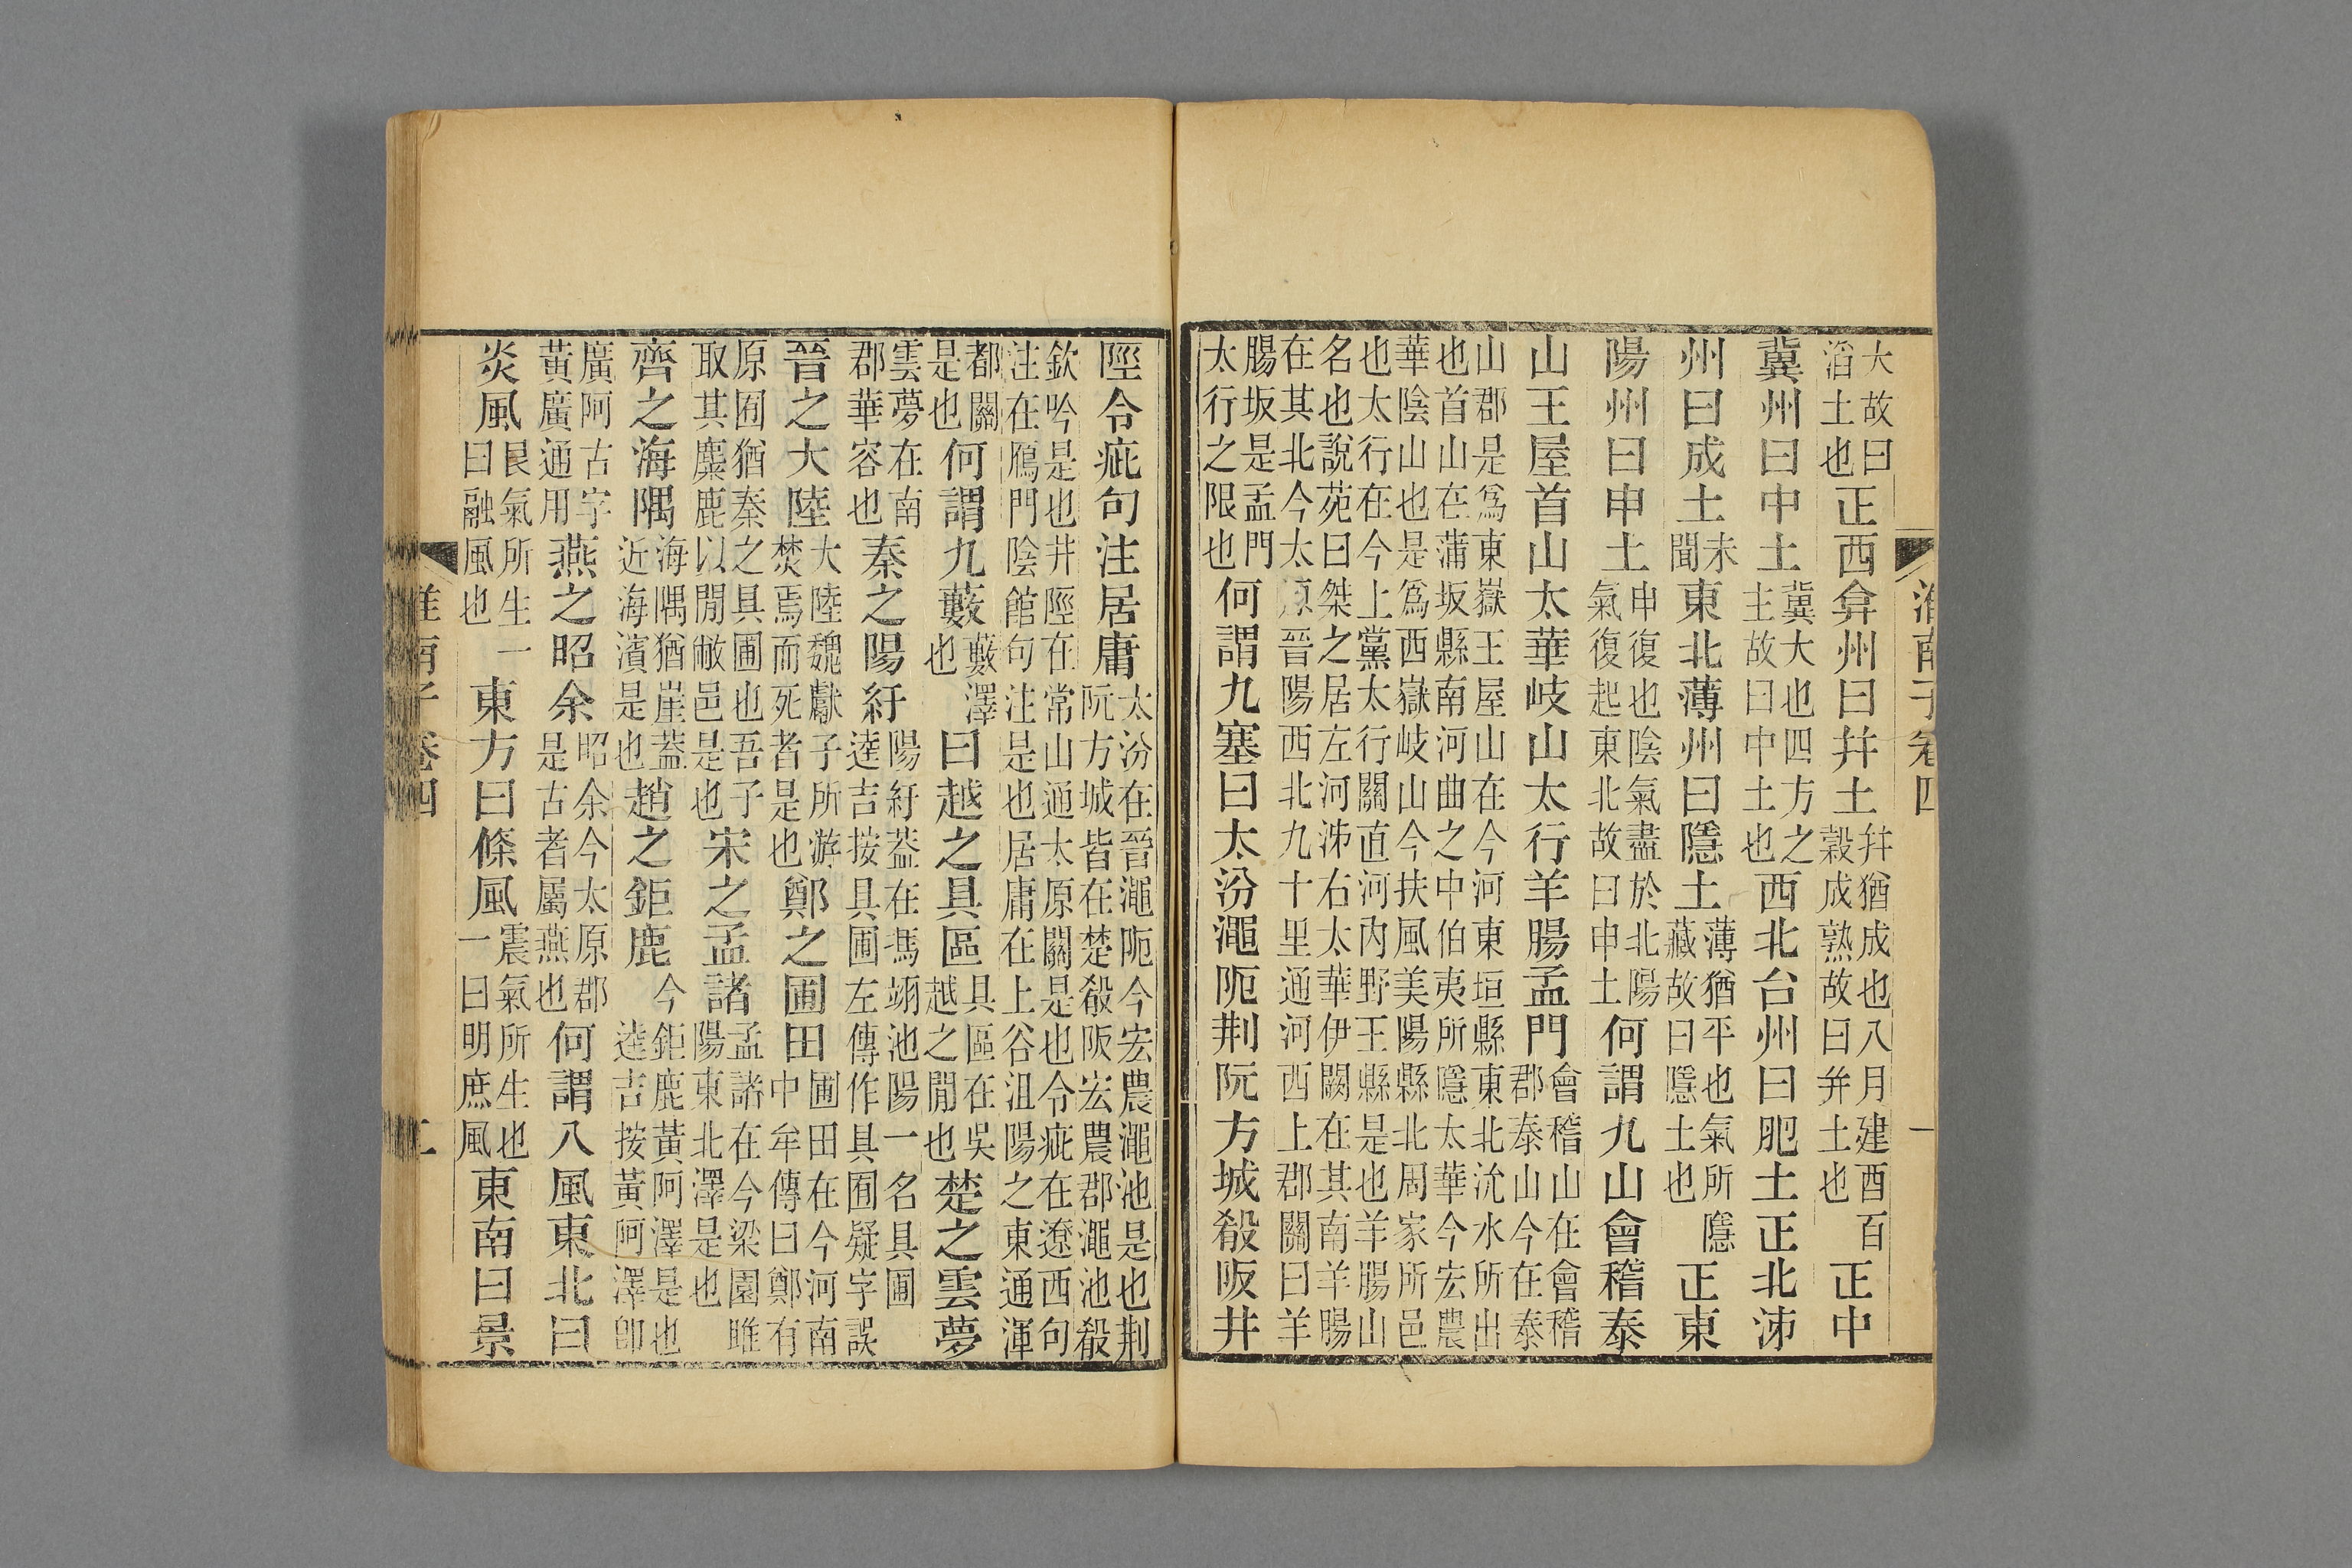 大故曰
滔土也
正西弇州曰幷土
幷猶成也八月建酉百
穀成熟故曰幷土也
正中
冀州曰中土
冀大也四方之
主故曰中土也
西北台州曰肥土正北泲
州曰成土
未
聞
東北薄州曰隱土
薄猶平也氣所隱
藏故曰隱土也
正東
陽州曰申土
申復也陰氣盡於北陽
氣復起東北故曰申土
何謂九山會稽泰
山王屋首山太華岐山太行羊腸孟門
會稽山在會稽
郡泰山今在泰
山郡是爲東嶽王屋山在今河東垣縣東北沇水所出
也首山在蒲坂縣南河曲之中伯夷所隱太華今宏農
華陰山也是爲西嶽岐山今扶風美陽縣北周家所邑
也太行在今上黨太行關直河內野王縣是也羊腸山
名也說苑曰桀之居左河泲右太華伊闕在其南羊腸
在其北今太原晉陽西北九十里通河西上郡關曰羊
腸坂是孟門
太行之限也
何謂九塞曰太汾澠阨荆阮方城殽阪井
陘令疵句注居庸
太汾在晉澠阨今宏農澠池是也荆
阮方城皆在楚殽阪宏農郡澠池殽
欽吟是也井陘在常山通太原關是也令疵在遼西句
注在鴈門陰館句注是也居庸在上谷沮陽之東通渾
都關
是也
何謂九藪
藪澤
也
曰越之具區
具區在吳
越之閒也
楚之雲夢
雲夢在南
郡華容也
秦之陽紆
陽紆葢在馮翊池陽一名具圃
逵吉按具圃左傳作具囿疑字誤
晉之大陸
大陸魏獻子所游
焚焉而死者是也
鄭之圃田
圃田在今河南
中牟傳曰鄭有
原囿猶秦之具圃也吾子
取其麋鹿以閒敝邑是也
宋之孟諸
孟諸在今梁園睢
陽東北澤是也
齊之海隅
海隅猶崖葢
近海濱是也
趙之鉅鹿
今鉅鹿黃阿澤是也
逵吉按黃阿澤卽
廣阿古字
黃廣通用
燕之昭余
昭余今太原郡
是古者屬燕也
何謂八風東北曰
炎風
艮氣所生一
曰融風也
東方曰條風
震氣所生也
一曰明庶風
東南曰景
淮南子卷四
一
淮南子卷四
二